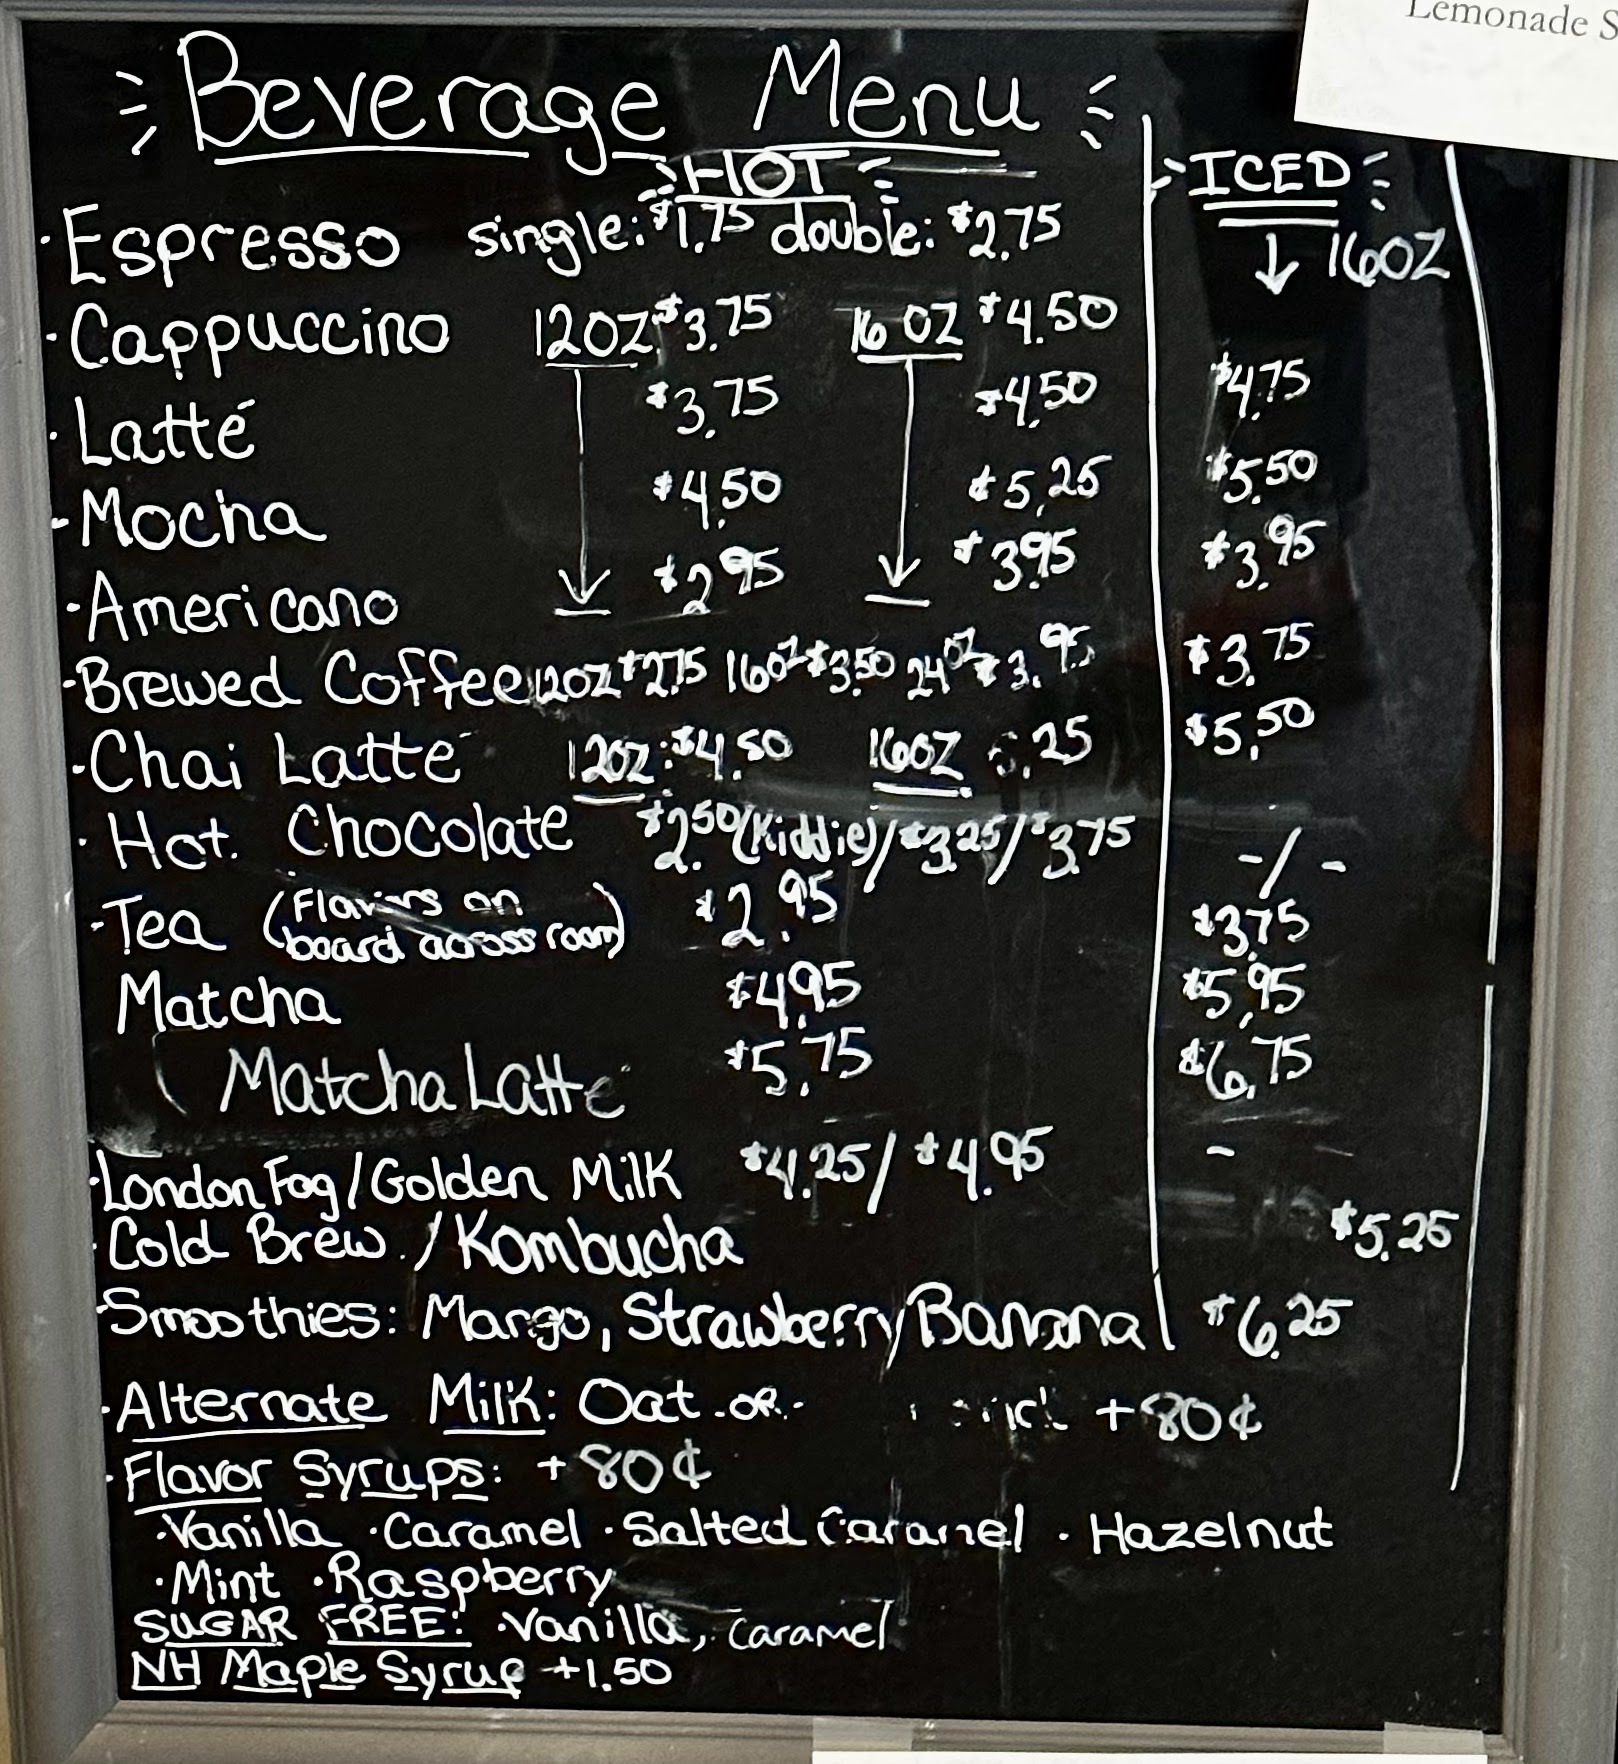 Lemonade S
Beverage Menu
HOT
ICED
↓ 16OZ
· Espresso single: $1.75 double: $2.75
· Cappuccino 12OZ $3.75 16 OZ $4.50
· Latté $3.75 $4.50 $4.75
· Mocha $4.50 $5.25 $5.50
· Americano $2.95 $3.95 $3.95
· Brewed Coffee 12OZ $2.75 16OZ $3.50 24OZ $3.95 $3.75
· Chai Latte 12OZ: $4.50 16OZ .25 $5.50
· Hot Chocolate $2.50 (Kiddie) / $3.25 / $3.75 - / -
· Tea (Flavors on board across room) $2.95 $3.75
Matcha $4.95 $5.95
Matcha Latte $5.75 $6.75
· London Fog / Golden Milk $4.25 / $4.95 -
· Cold Brew. / Kombucha $5.25
· Smoothies: Mango, Strawberry Banana $6.25
· Alternate Milk: Oat or +80¢
· Flavor Syrups: +80¢
· Vanilla · Caramel · Salted Caramel · Hazelnut
· Mint · Raspberry
SUGAR FREE: · Vanilla, Caramel
NH Maple Syrup +1.50